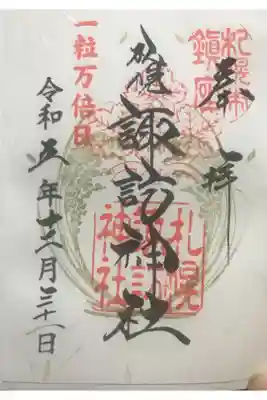 奉拝
札幌市
鎮座
札幌
諏訪神社
札幌
諏訪
神社
一粒万倍日
令和五年十二月三十一日